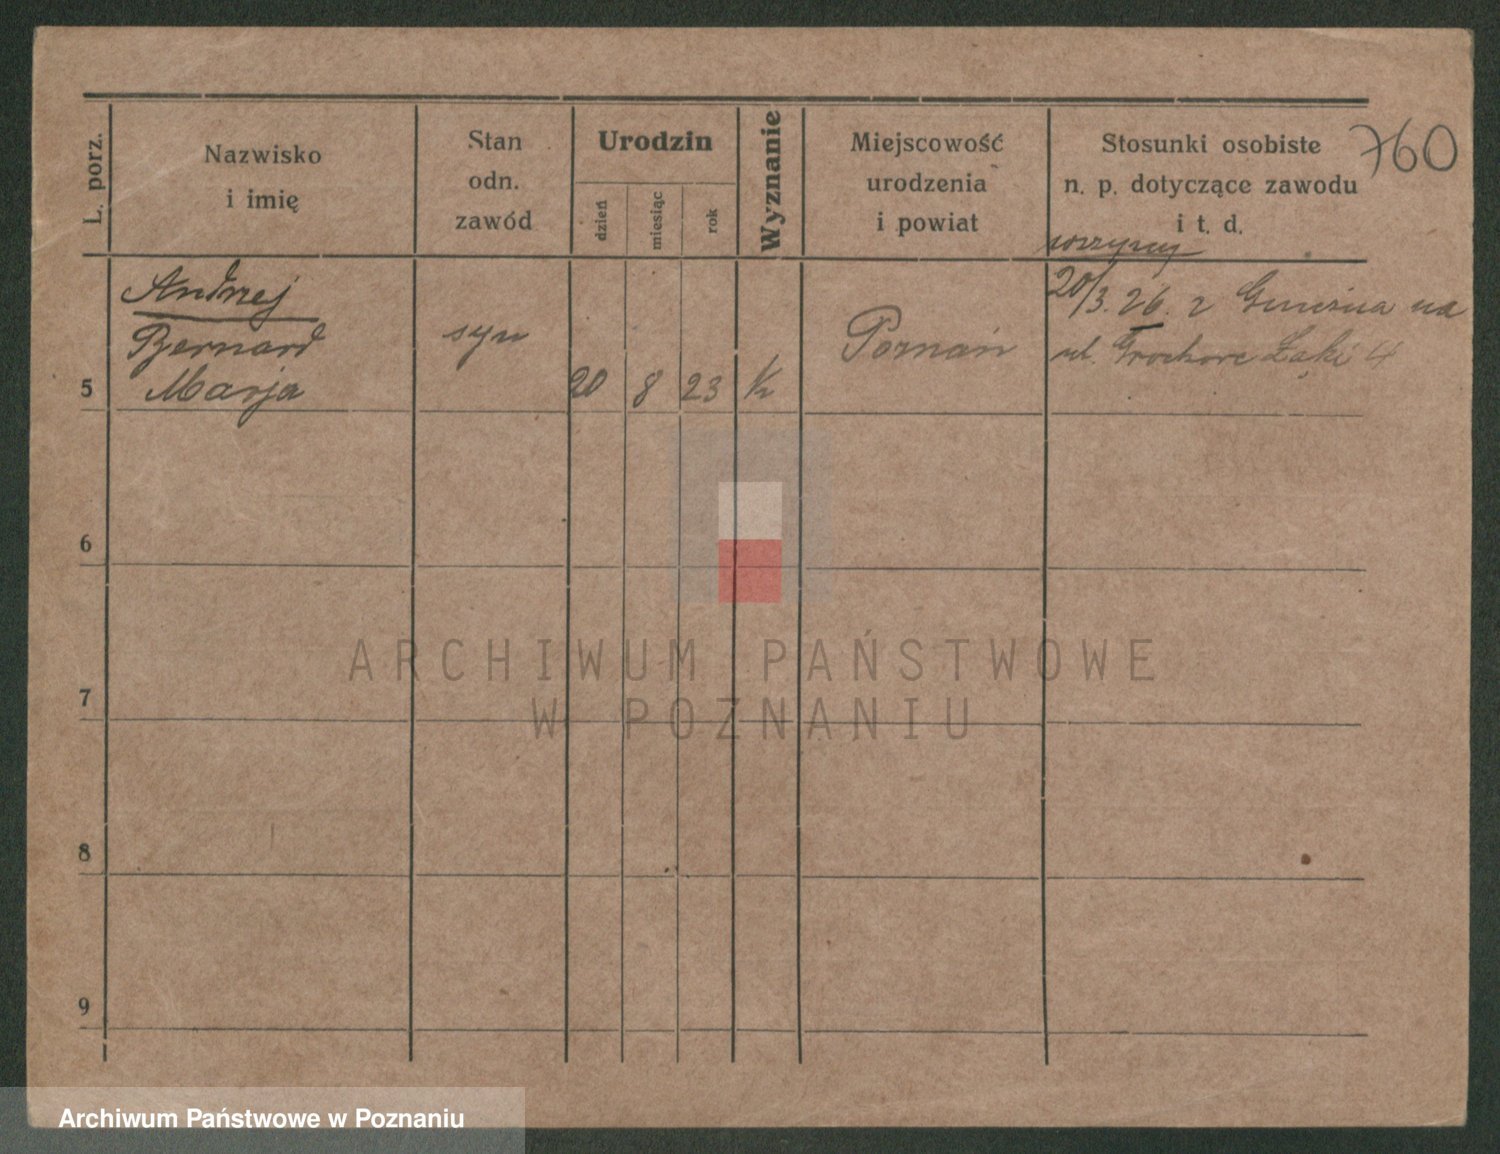 760
L. porz.
Nazwisko
i imię
Stan
odn.
zawód
Urodzin
dzień
miesiąc
rok
Wyznanie
Miejscowość
urodzenia
i powiat
Stosunki osobiste
n. p. dotyczące zawodu
i t. d.
wszyscy
Andrzej
Bernard
Marja
5
syn
20
8
23
K
Poznań
20/3. 26. z Gniezna na
ul. Grochowe Łąki 4
6
7
8
9
ARCHIWUM PAŃSTWOWE
W POZNANIU
Archiwum Państwowe w Poznaniu